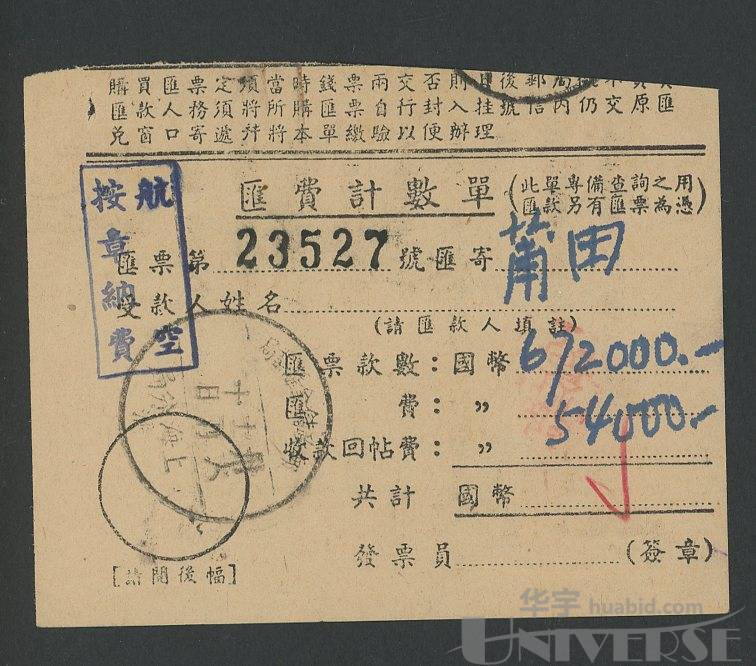 購買匯票定須當時錢票兩交否則日後郵局
匯款人務須將所購匯票自行封入挂號信內仍交原匯
兌窗口寄遞幷將本單繳驗以便辦理
匯費計數單 (此單專備查詢之用
匯款另有匯票為憑)
航空
按章納費
匯票第 23527 號匯寄 莆田
受款人姓名
(請匯款人填註)
匯票款數：國幣 672000.-
匯費：〃 54000.-
收款回帖費：〃
共計 國幣
發票員 (簽章)
[請閱後幅]
华宇 huabid.com
UNIVERSE